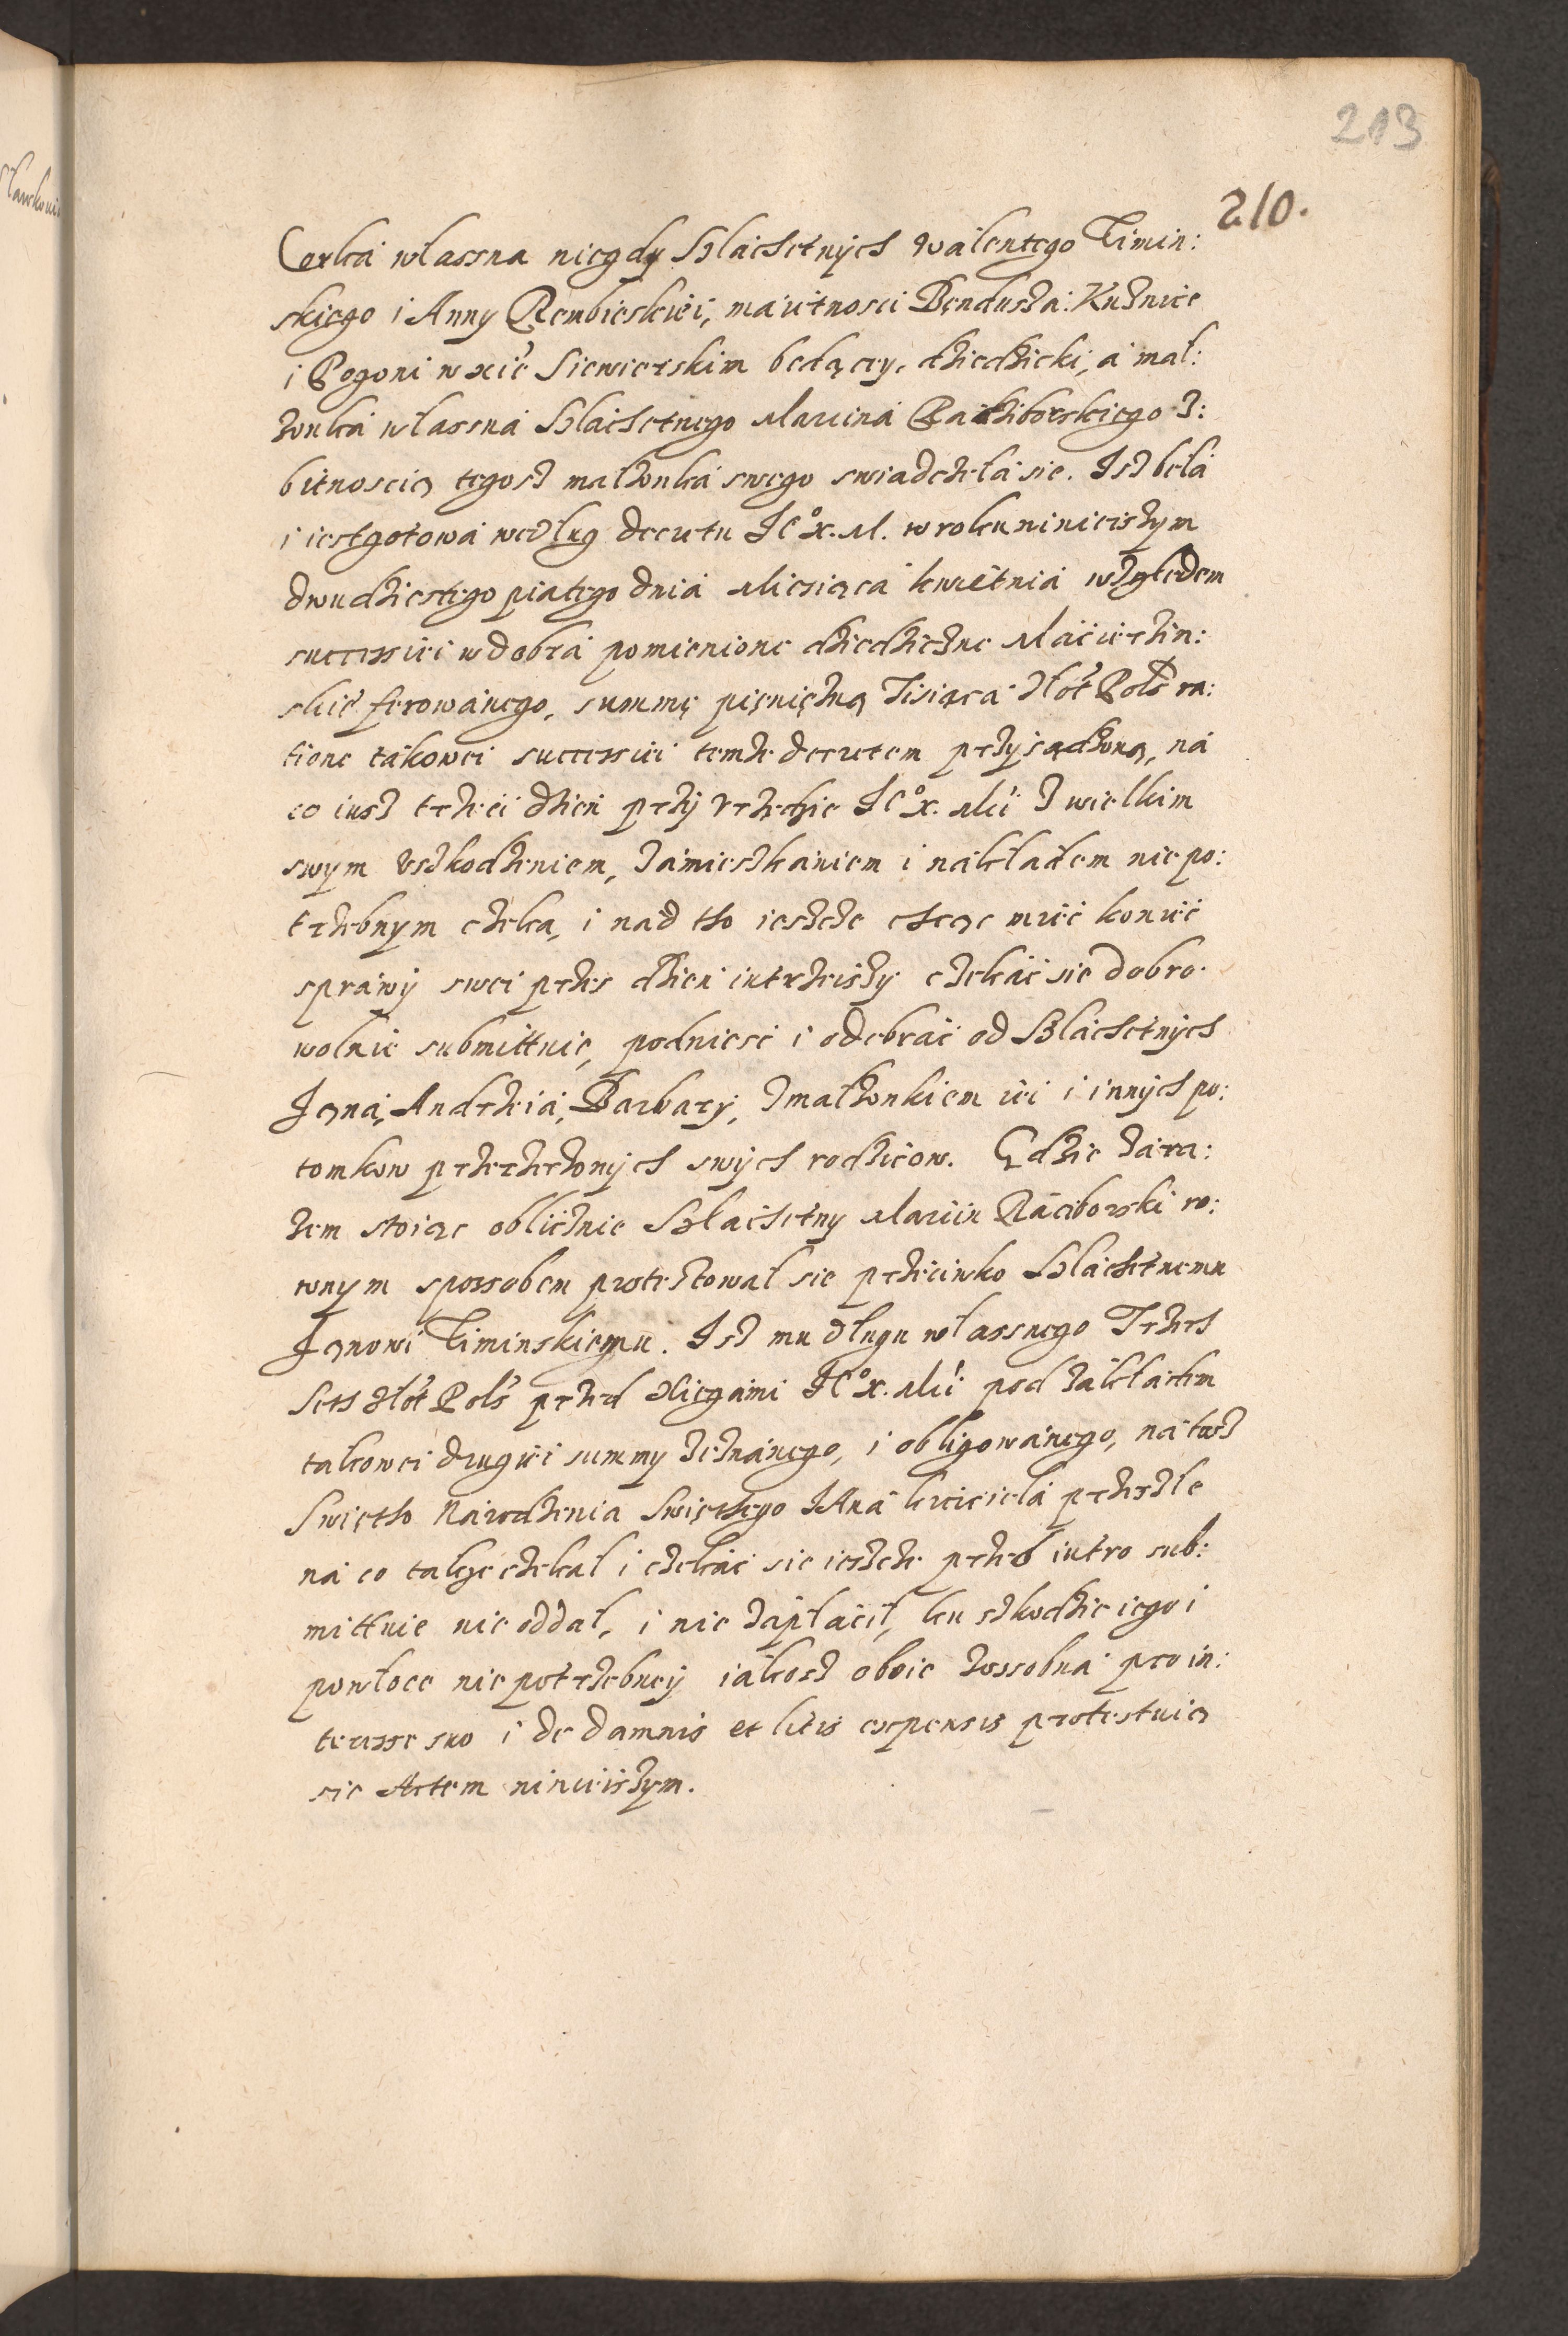 213
210.
Corka własna niegdy Slachetnych Walentego Timin:
skiego i Anny Rembieskiei, maiętnosci Bendusza: Kuznice
i Pogoni w xie Siewierskim będący, dziedzicki, a mał:
żonka własna Slachetnego Marcina Raciborskiego z:
bitnoscią tegosz małżonka swego swiadczeła sie. Isz beła
i iest gotowa według decretu Ic° x. M. w roku ninieiszym
dwudziestego piątego dnia Miesiąca kwietnia względem
successiei w dobra pomienione dziedziczne Macierzin:
skie ferowanego, summę pieniężną Tisiąca złot Pols ra:
tione takowei successiei temze decretem przysądzoną, na
co iusz trzeci dzień przy Vrzędzie Ic° x. Mci z wielkim
swym Vszkodzeniem, zamieszkaniem i nakładem niepo:
trzebnym czeka, i nad tho iescze chcąc mieć koniec
sprawy swei przes dzień iutrzeiszy czekać sie dobro:
wolnie submittuie, podniesc i odebrać od Slachetnych
Jana, Andrzeia, Barbary, z małżonkiem iei i innych po:
tomkow przerzeczonych swych rodzicow. Gdzie zara:
zem stoiąc oblicznie Slachetny Marcin Raciborski ro:
wnym sposobem protestował sie przeciwko Slachetnemu
Janowi Timinskiemu. Isz mu długu własnego Trzech
Seth złot Pols przed Xięgami Ic° x. Mci pod zakładem
takowei drugiei summy zeznanego, i obligowanego, na tosz
Swiętho Narodzenia Swiętego Jana krciciela przeszłe
na co takze czekał i czekać sie iescze przed iutro sub:
mittuie nie oddał, i nie zapłacił, ku szkodzie iego i
powłoce niepotrzebney iakosz oboie zossobna pro in:
teresse suo i de damnis et litis expensis protestuią
sie Actem ninieiszym.